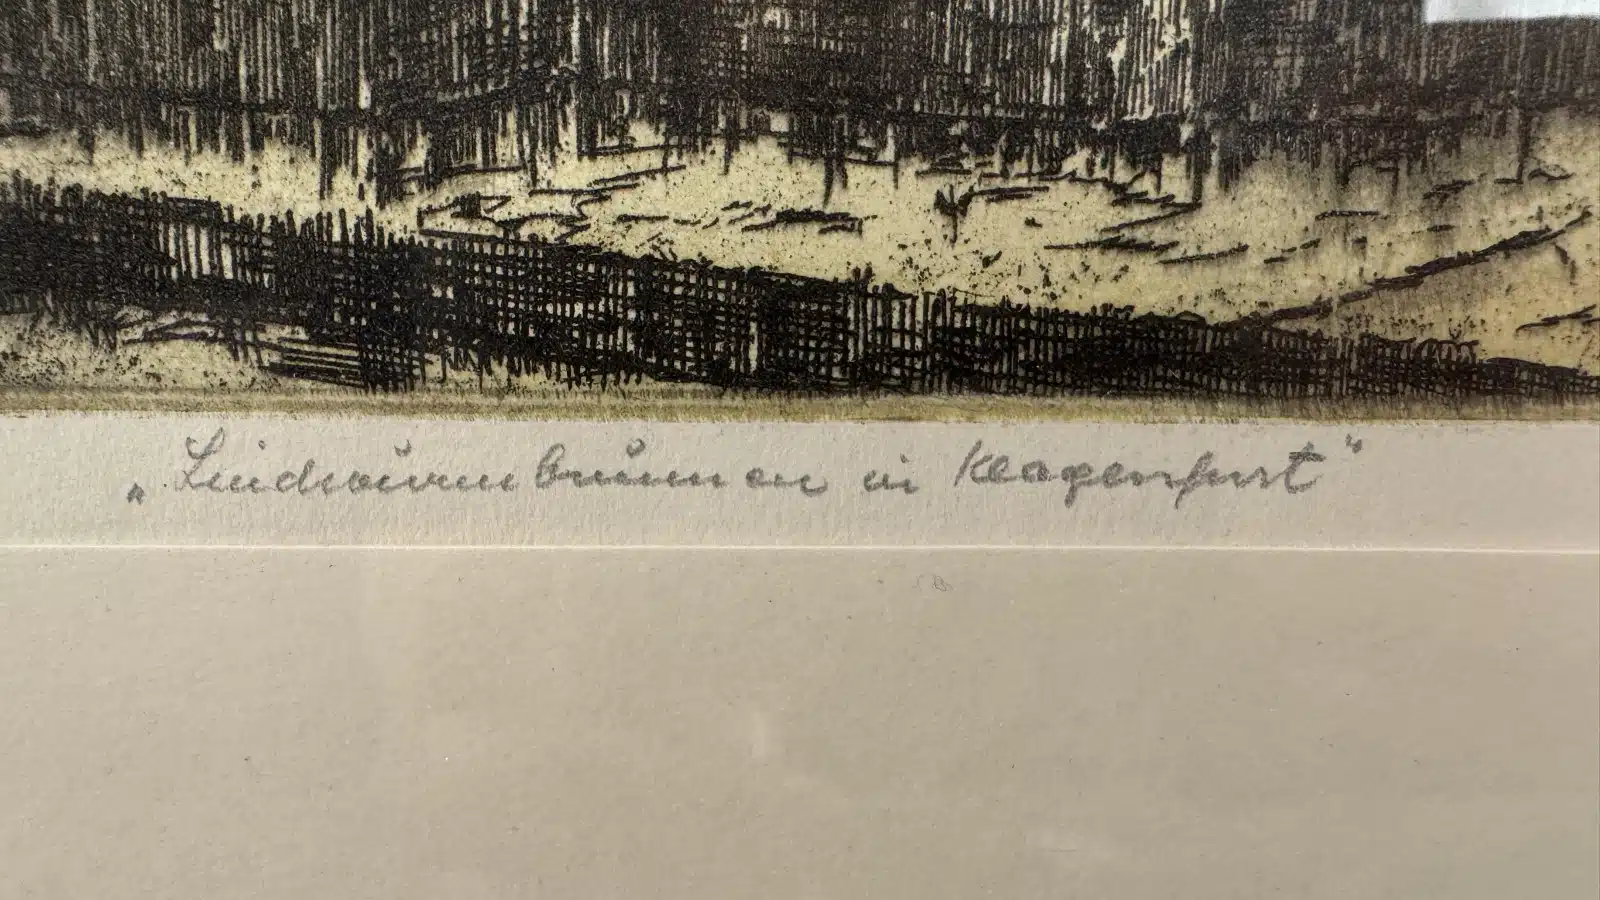 „Lindwurmbrunnen in Klagenfurt"